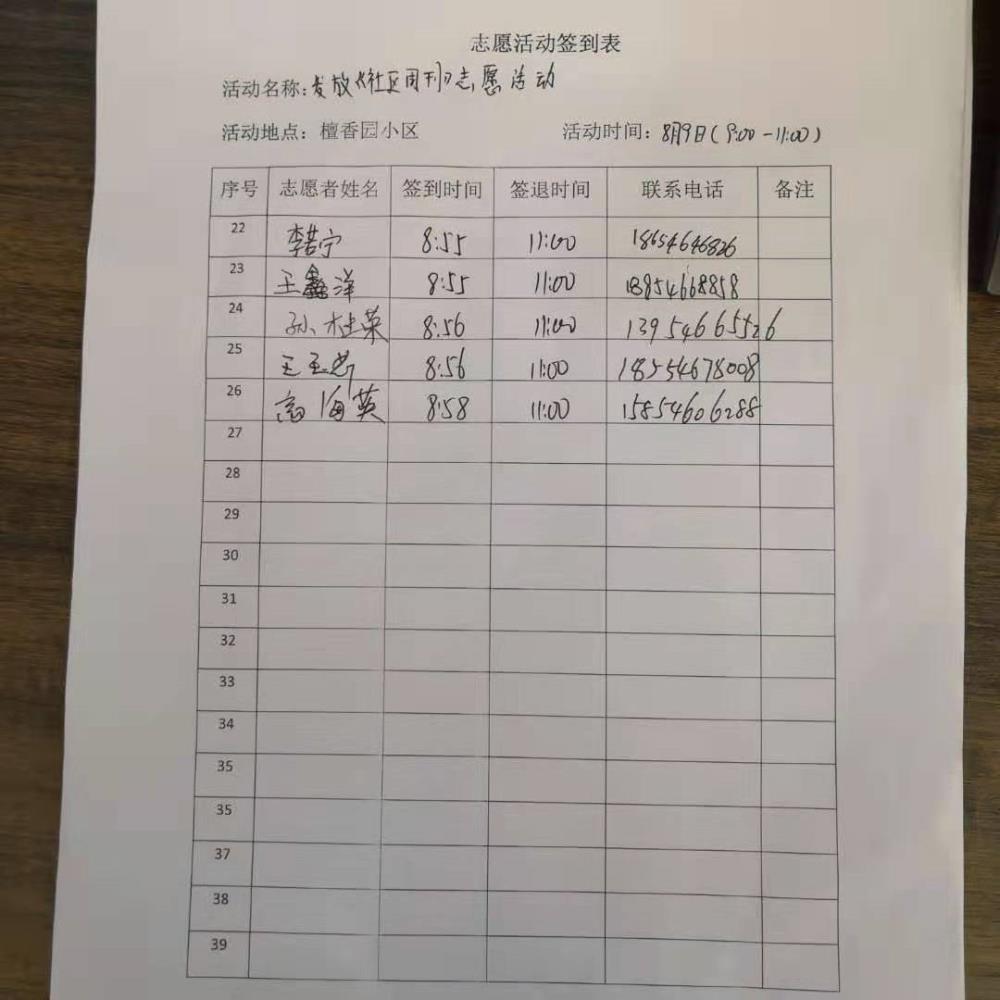 志愿活动签到表
活动名称：发放《社区周刊》志愿活动
活动地点：檀香园小区 活动时间：8月9日(9:00-11:00)
序号 志愿者姓名 签到时间 签退时间 联系电话 备注
22 李若宁 8:55 11:00 18654646826
23 王鑫洋 8:55 11:00 18854668858
24 孙桂荣 8:56 11:00 13954665526
25 王玉 8:56 11:00 18554678008
26 高海英 8:58 11:00 15854606288
27
28
29
30
31
32
33
34
35
35
37
38
39